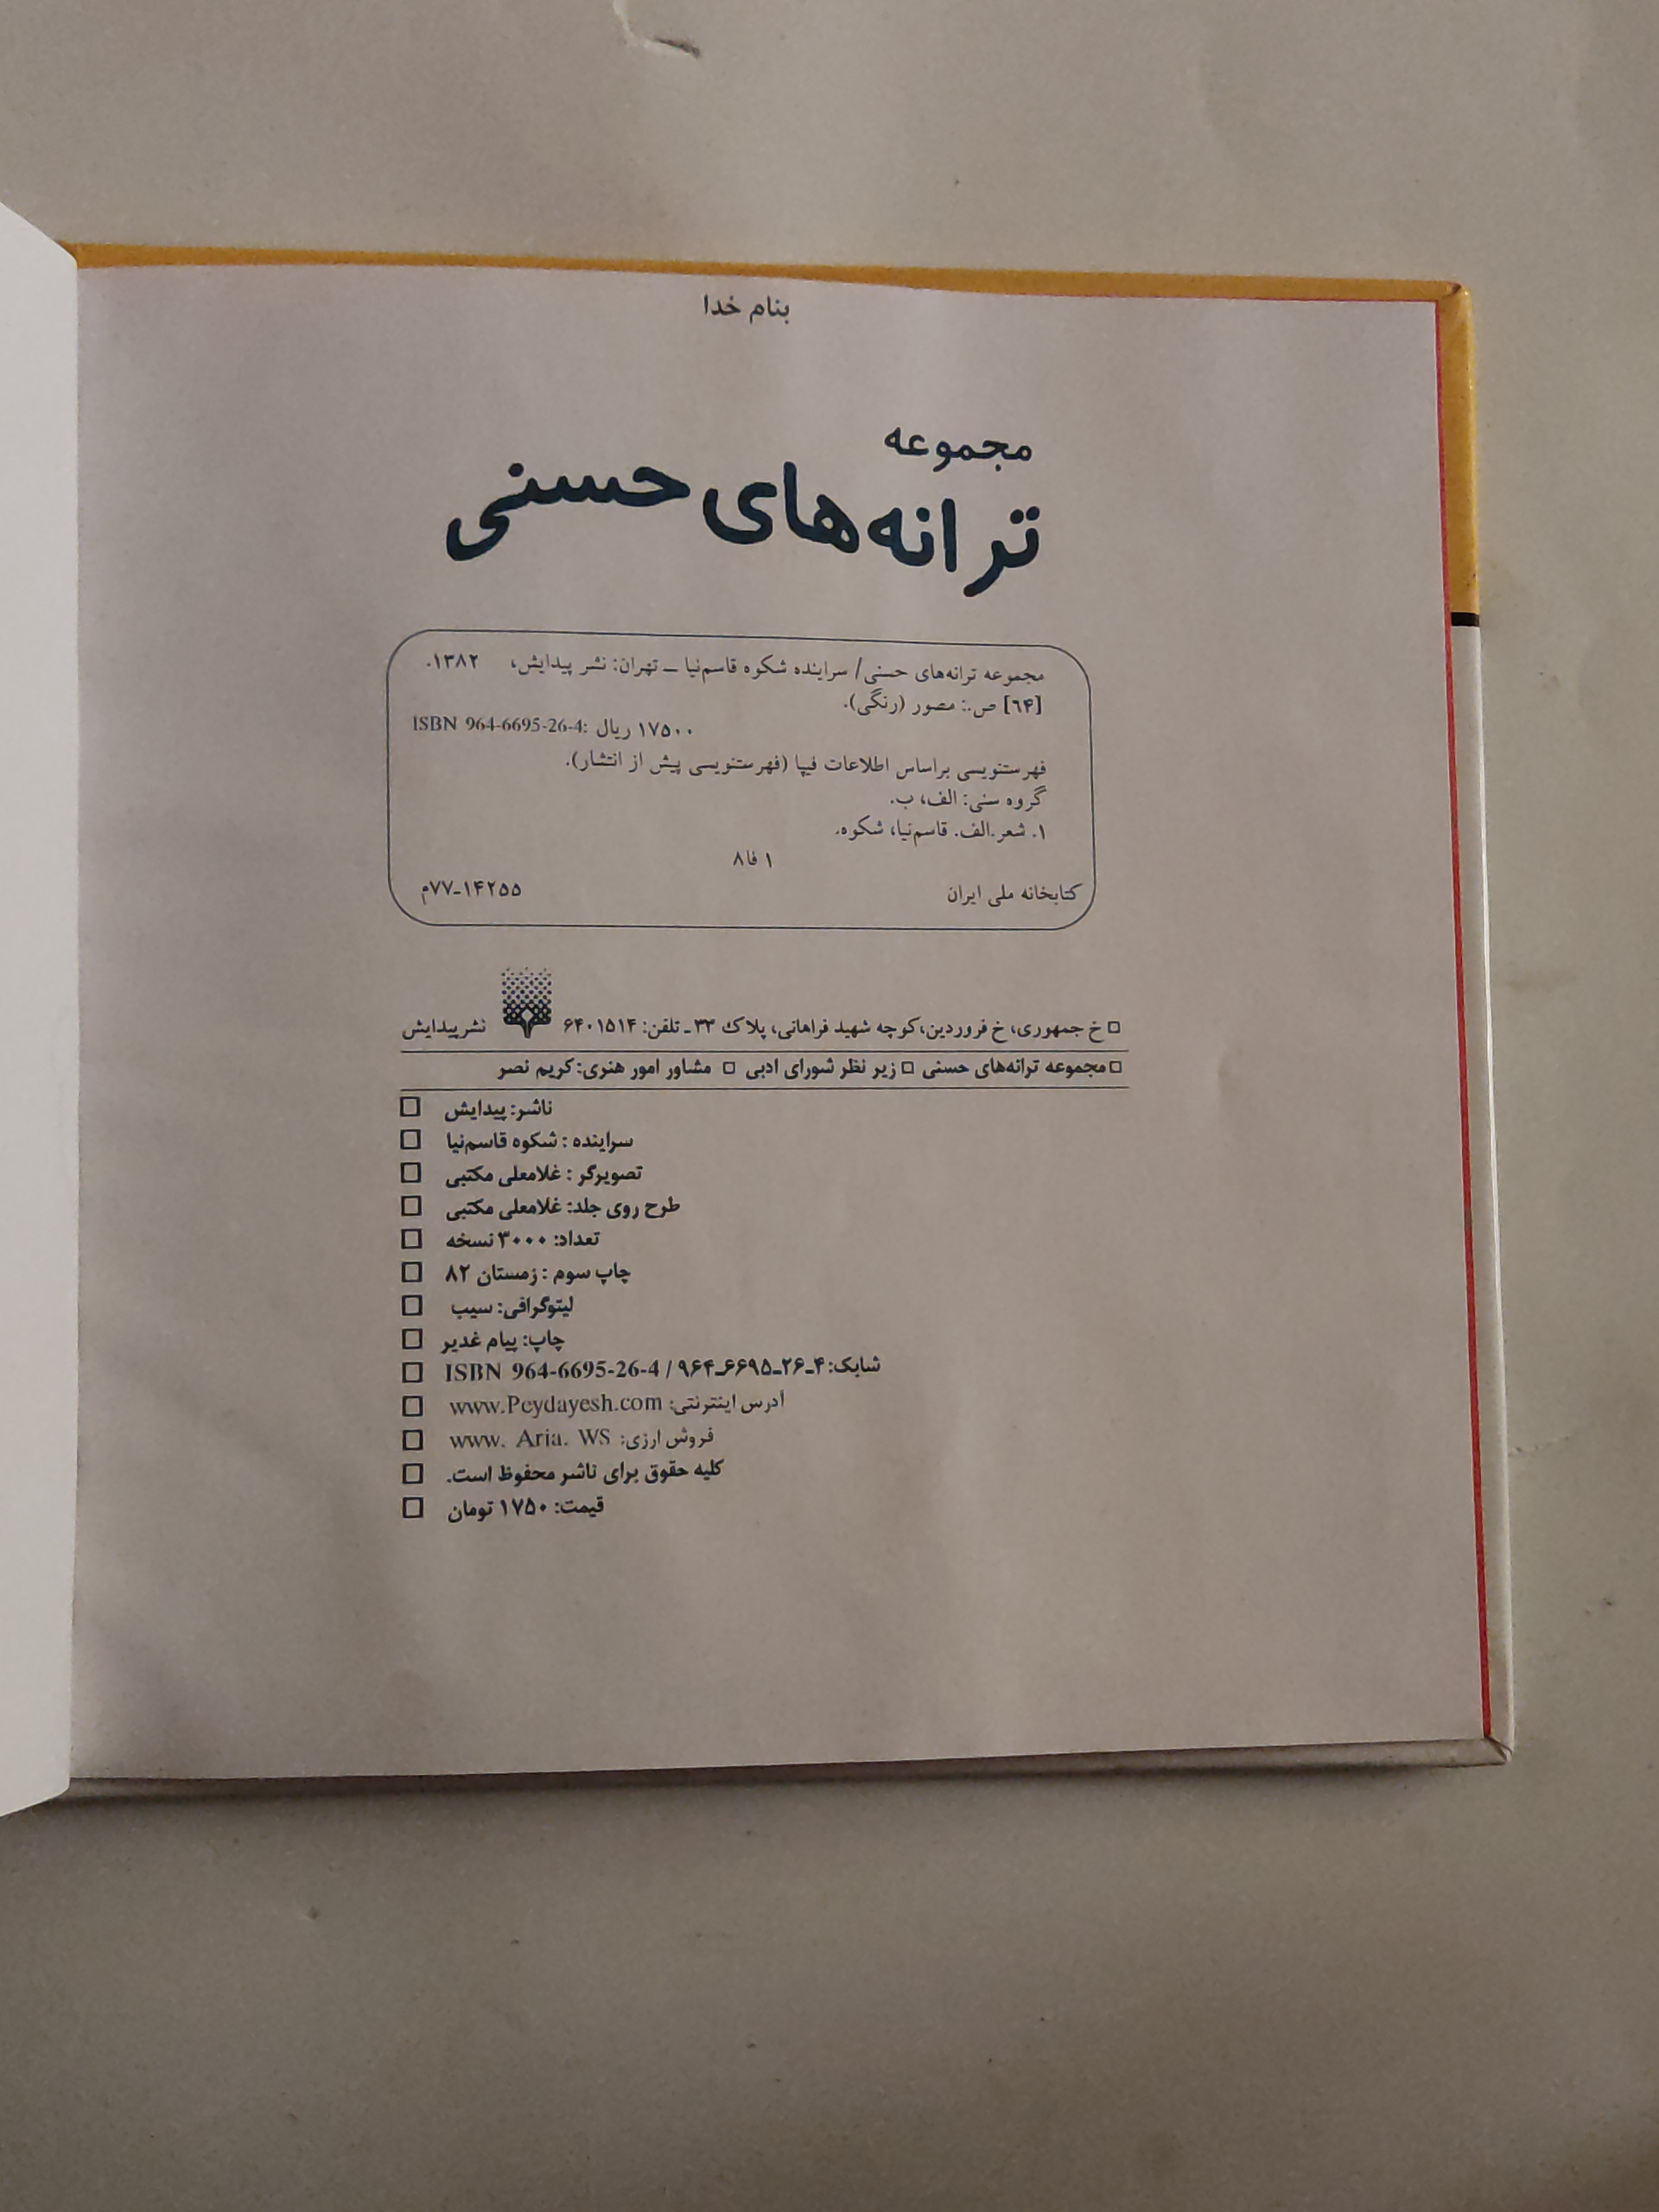 بنام خدا
مجموعه
ترانه‌های حسنی
مجموعه ترانه‌های حسنی/ سراینده شکوه قاسم‌نیا ـ تهران: نشر پیدایش، ۱۳۸۲.
[۶۴] ص.: مصور (رنگی).
۱۷۵۰۰ ریال :ISBN 964-6695-26-4
فهرستنویسی براساس اطلاعات فیپا (فهرستنویسی پیش از انتشار).
گروه سنی: الف، ب.
۱. شعر.الف. قاسم‌نیا، شکوه.
۱ فا ۸
کتابخانه ملی ایران ۱۴۲۵۵-۷۷م
□ خ جمهوری، خ فروردین، کوچه شهید فراهانی، پلاک ۳۳ ـ تلفن: ۶۴۰۱۵۱۴ نشر پیدایش
□ مجموعه ترانه‌های حسنی □ زیر نظر شورای ادبی □ مشاور امور هنری: کریم نصر
□ ناشر: پیدایش
□ سراینده : شکوه قاسم‌نیا
□ تصویرگر : غلامعلی مکتبی
□ طرح روی جلد: غلامعلی مکتبی
□ تعداد: ۳۰۰۰ نسخه
□ چاپ سوم : زمستان ۸۲
□ لیتوگرافی: سیب
□ چاپ: پیام غدیر
□ شابک: ۴-۲۶-۶۶۹۵-۹۶۴ / ISBN 964-6695-26-4
□ آدرس اینترنتی: www.Peydayesh.com
□ فروش ارزی: www. Aria. WS
□ کلیه حقوق برای ناشر محفوظ است.
□ قیمت: ۱۷۵۰ تومان